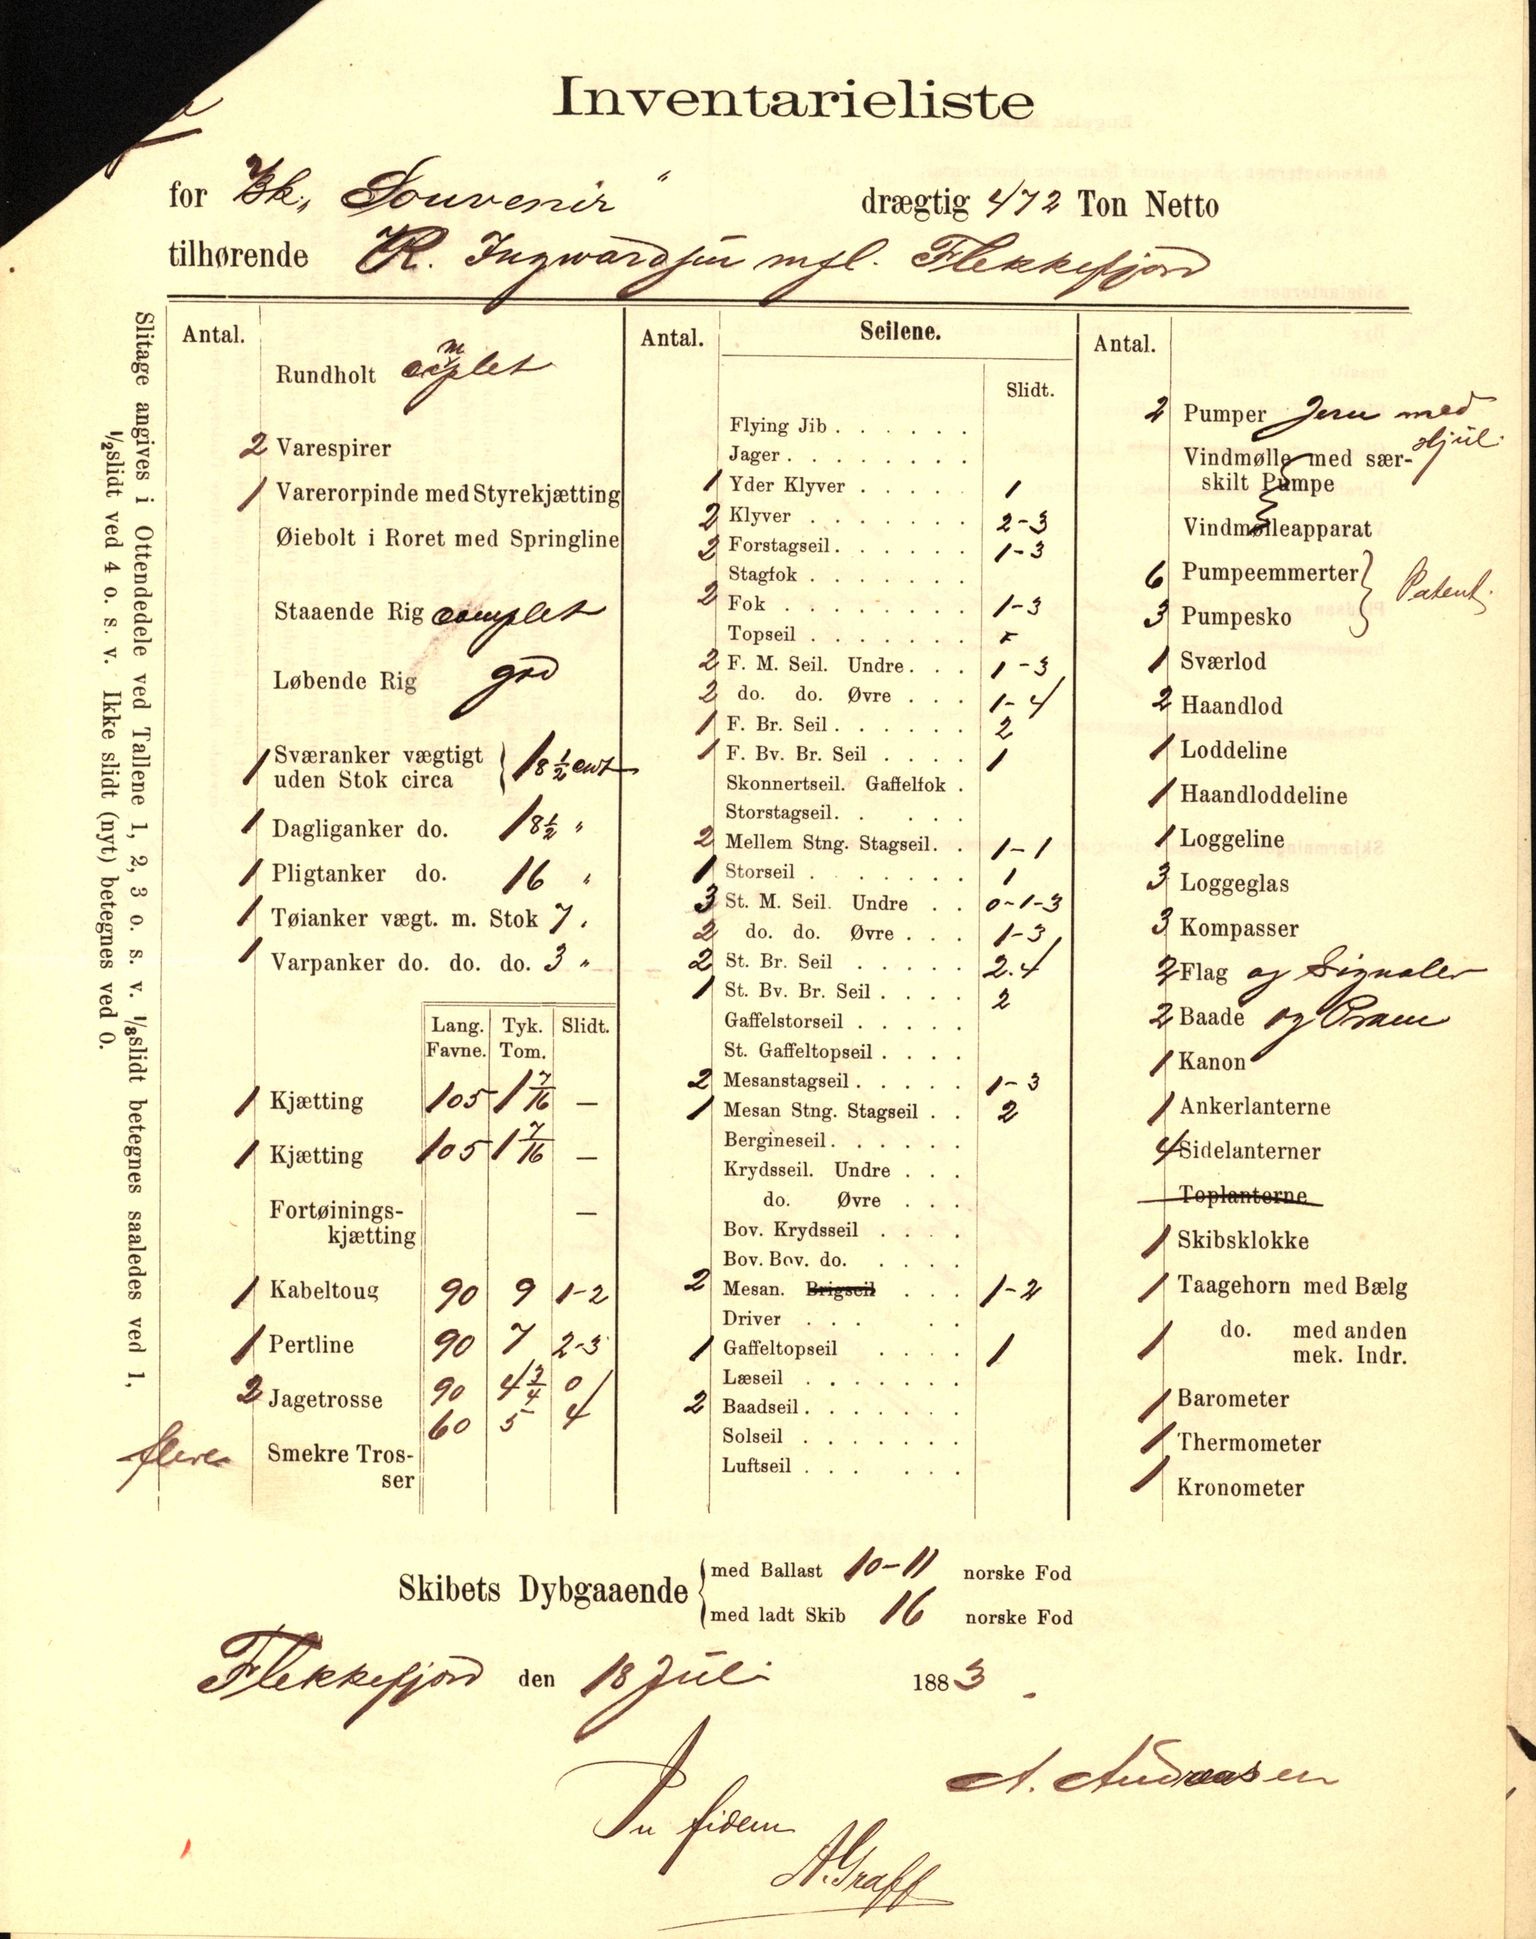 Inventarieliste
for Bk. „Souvenir“ drægtig 472 Ton Netto
tilhørende R. Ingwardsen mfl. Flekkefjord
Slitage angives i Ottendedele ved Tallene 1, 2, 3 o. s. v. 1/8slidt betegnes saaledes ved 1,
1/2slidt ved 4 o. s. v. Ikke slidt (nyt) betegnes ved 0.
Antal.
Rundholt complet
2 Varespirer
1 Varerorpinde med Styrekjætting
Øiebolt i Roret med Springline
Staaende Rig complet
Løbende Rig god
1 Sværanker vægtigt
uden Stok circa } 18 1/2 cwt
1 Dagliganker do. 18 1/2 "
1 Pligtanker do. 16 "
1 Tøianker vægt. m. Stok 7 "
1 Varpanker do. do. do. 3 "
Lang. Tyk. Slidt.
Favne. Tom.
1 Kjætting 105 1 7/16 —
1 Kjætting 105 1 7/16 —
Fortøinings-
kjætting —
1 Kabeltoug 90 9 1-2
1 Pertline 90 7 2-3
2 Jagetrosse 90 4 3/4 0
60 5 4
flere Smekre Tros-
ser
Antal. Seilene.
Slidt.
Flying Jib . . . . . .
Jager . . . . . . . .
1 Yder Klyver . . . . . 1
2 Klyver . . . . . . . 2-3
2 Forstagseil . . . . . . 1-3
Stagfok . . . . . . .
2 Fok . . . . . . . . 1-3
Topseil . . . . . . .
2 F. M. Seil. Undre . . . 1-3
2 do. do. Øvre . . . 1-4
1 F. Br. Seil . . . . . . 2
1 F. Bv. Br. Seil . . . . 1
Skonnertseil. Gaffelfok .
Storstagseil. . . . .
2 Mellem Stng. Stagseil. . 1-1
1 Storseil . . . . . . . 1
3 St. M. Seil. Undre . . 0-1-3
2 do. do. Øvre . . . 1-3
2 St. Br. Seil . . . . . 2.4
1 St. Bv. Br. Seil . . . . 2
Gaffelstorseil . . . . .
St. Gaffeltopseil . . . .
2 Mesanstagseil . . . . . 1-3
1 Mesan Stng. Stagseil . . 2
Bergineseil . . . . . .
Krydsseil. Undre . . .
do. Øvre . . .
Bov. Krydsseil . . . .
Bov. Bov. do. . . . .
2 Mesan. Brigseil . . . 1-2
Driver . . . . .
1 Gaffeltopseil . . . . 1
Læseil . . . . . . .
2 Baadseil . . . . . . .
Solseil . . . . . . .
Luftseil . . . . . .
Antal.
2 Pumper Jern med
Hjül.
Vindmølle med sær-
skilt Pumpe
Vindmølleapparat
6 Pumpeemmerter } Patent.
3 Pumpesko
1 Sværlod
2 Haandlod
1 Loddeline
1 Haandloddeline
1 Loggeline
3 Loggeglas
3 Kompasser
2 Flag og Signaler
2 Baade og Pram
1 Kanon
1 Ankerlanterne
4 Sidelanterner
Toplanterne
1 Skibsklokke
1 Taagehorn med Bælg
1 do. med anden
mek. Indr.
1 Barometer
1 Thermometer
1 Kronometer
Skibets Dybgaaende { med Ballast 10-11 norske Fod
med ladt Skib 16 norske Fod
Flekkefjord den 18 Jüli 1883.
A. Andreasen
In fidem
A. Graff